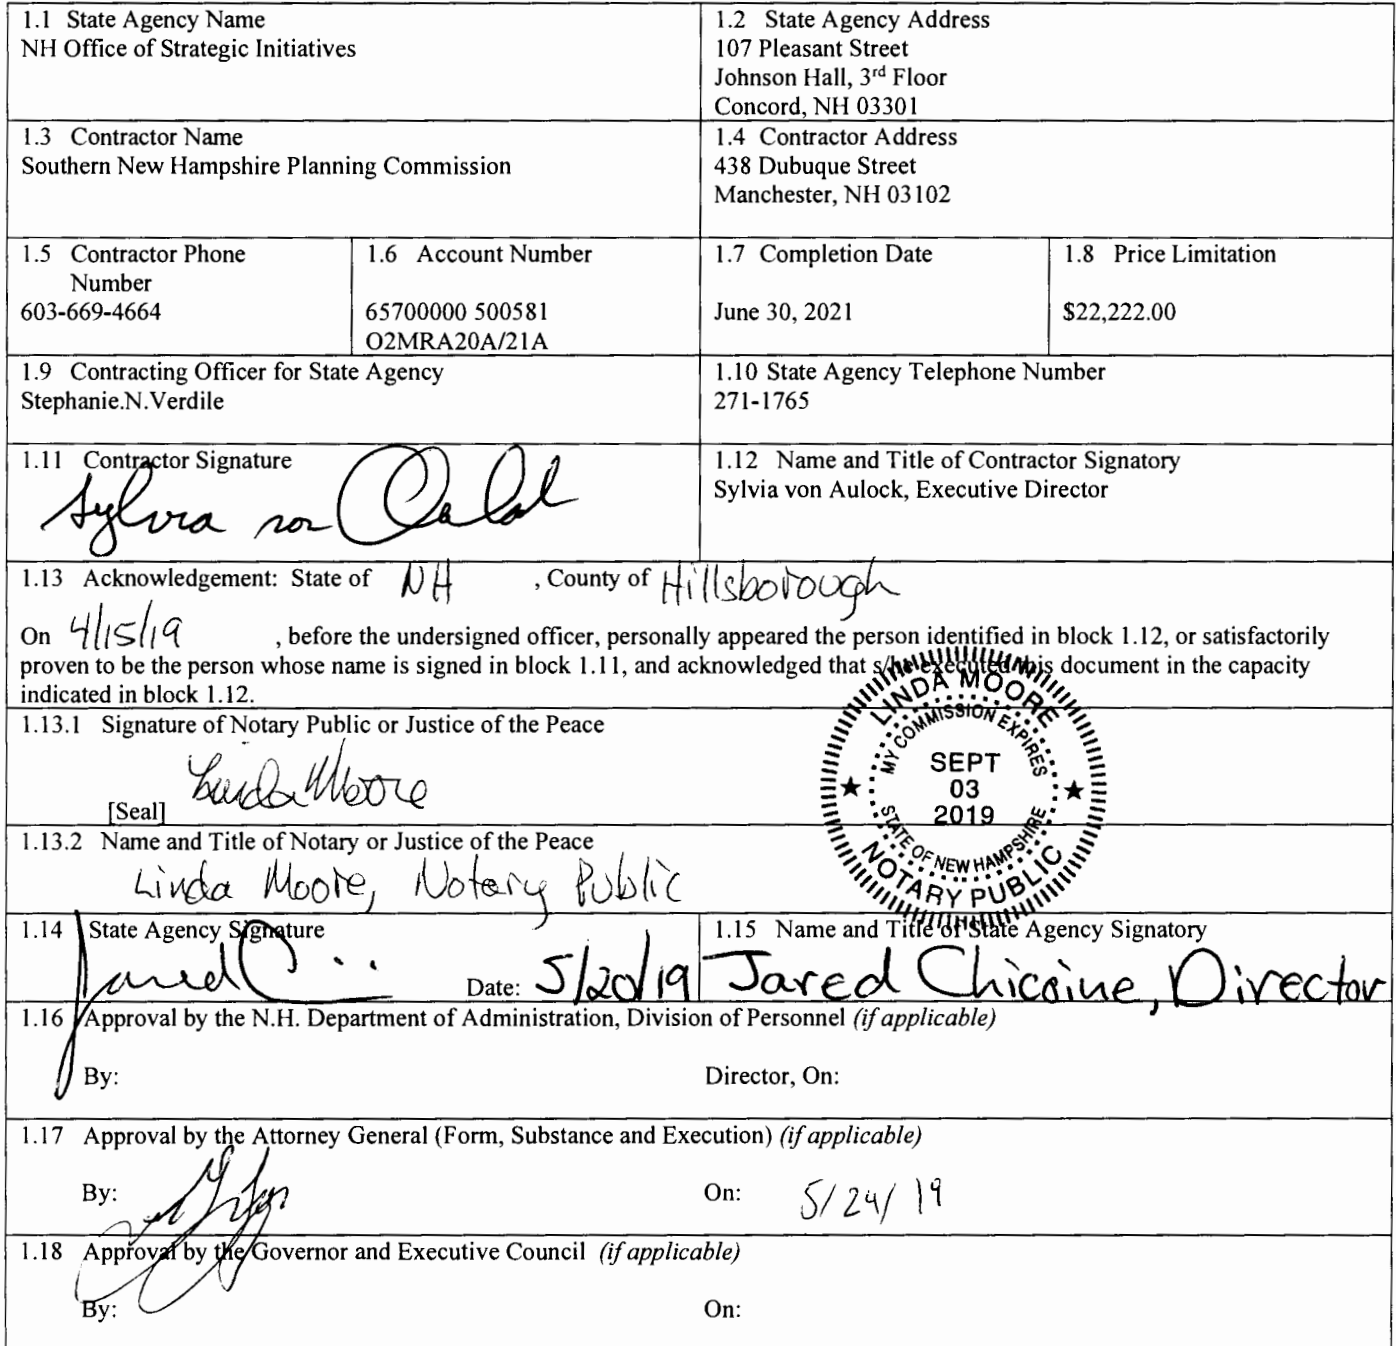 1.1 State Agency Name
NH Office of Strategic Initiatives
1.2 State Agency Address
107 Pleasant Street
Johnson Hall, 3rd Floor
Concord, NH 03301
1.3 Contractor Name
Southern New Hampshire Planning Commission
1.4 Contractor Address
438 Dubuque Street
Manchester, NH 03102
1.5 Contractor Phone
Number
603-669-4664
1.6 Account Number
65700000 500581
O2MRA20A/21A
1.7 Completion Date
June 30, 2021
1.8 Price Limitation
$22,222.00
1.9 Contracting Officer for State Agency
Stephanie.N.Verdile
1.10 State Agency Telephone Number
271-1765
1.11 Contractor Signature
Sylvia von
1.12 Name and Title of Contractor Signatory
Sylvia von Aulock, Executive Director
1.13 Acknowledgement: State of NH , County of Hillsborough
On 4/15/19 , before the undersigned officer, personally appeared the person identified in block 1.12, or satisfactorily
proven to be the person whose name is signed in block 1.11, and acknowledged that s/he executed this document in the capacity
indicated in block 1.12.
1.13.1 Signature of Notary Public or Justice of the Peace
Linda Moore
[Seal]
LINDA MOORE
MY COMMISSION EXPIRES
SEPT
03
2019
STATE OF NEW HAMPSHIRE
NOTARY PUBLIC
1.13.2 Name and Title of Notary or Justice of the Peace
Linda Moore, Notary Public
1.14 State Agency Signature
Jared C
Date: 5/20/19
1.15 Name and Title of State Agency Signatory
Jared Chicoine, Director
1.16 Approval by the N.H. Department of Administration, Division of Personnel (if applicable)
By: Director, On:
1.17 Approval by the Attorney General (Form, Substance and Execution) (if applicable)
By: On: 5/24/19
1.18 Approval by the Governor and Executive Council (if applicable)
By: On: